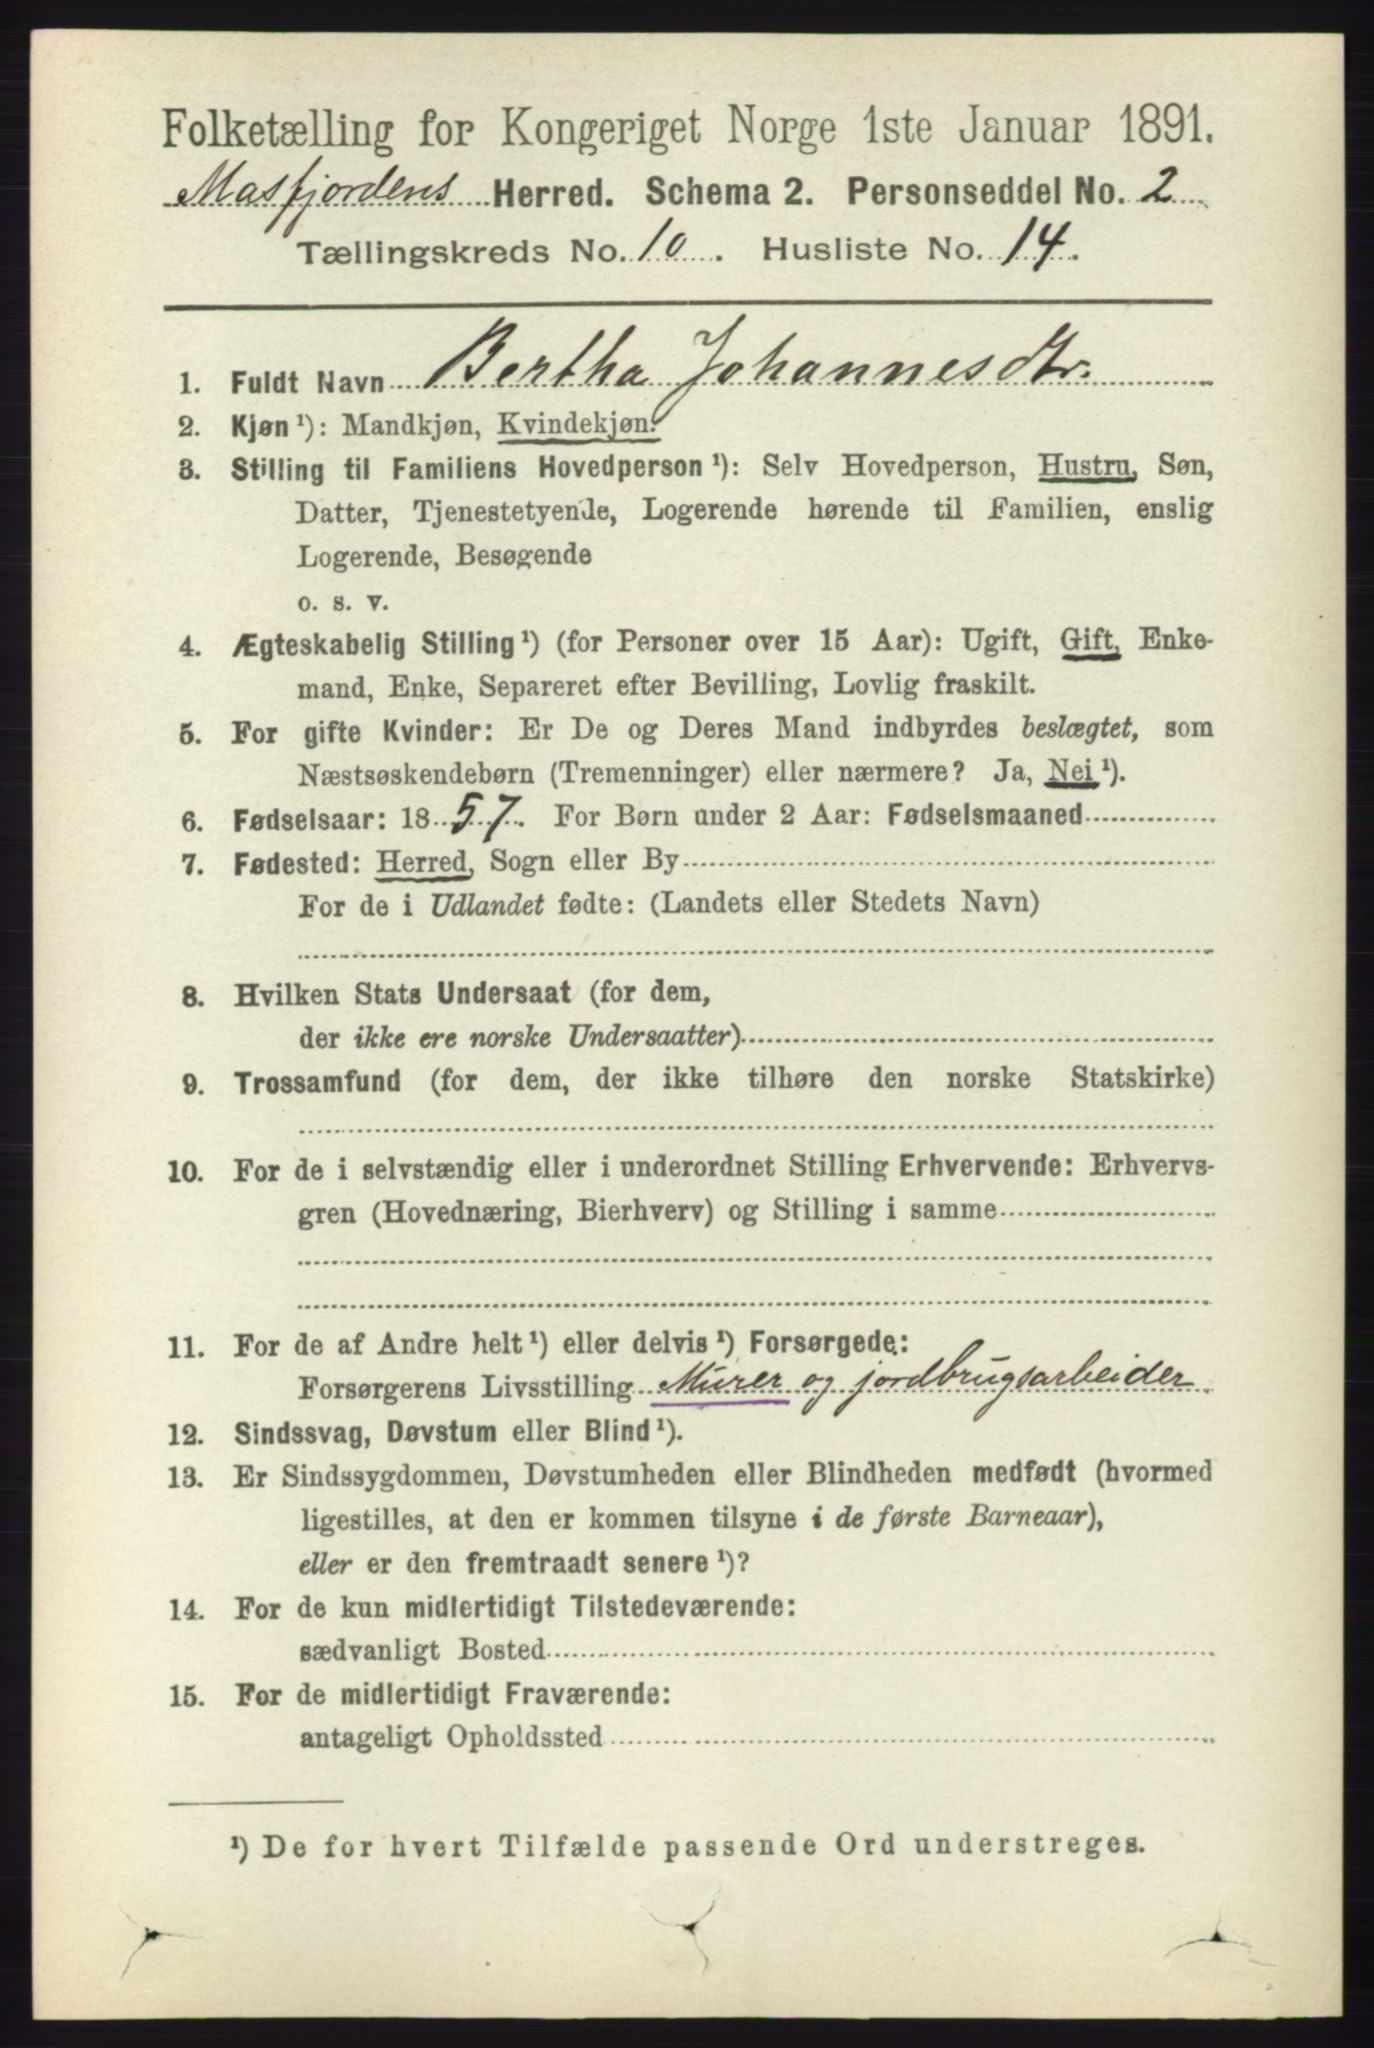 Folketælling for Kongeriget Norge 1ste Januar 1891.
Masfjordens Herred. Schema 2. Personseddel No. 2
Tællingskreds No. 10. Husliste No. 14.
1. Fuldt Navn Bertha Johannesdtr.
2. Kjøn ¹): Mandkjøn, Kvindekjøn.
3. Stilling til Familiens Hovedperson ¹): Selv Hovedperson, Hustru, Søn,
Datter, Tjenestetyende, Logerende hørende til Familien, enslig
Logerende, Besøgende
o. s. v.
4. Ægteskabelig Stilling ¹) (for Personer over 15 Aar): Ugift, Gift, Enke-
mand, Enke, Separeret efter Bevilling, Lovlig fraskilt.
5. For gifte Kvinder: Er De og Deres Mand indbyrdes beslægtet, som
Næstsøskendebørn (Tremenninger) eller nærmere? Ja, Nei ¹).
6. Fødselsaar: 1857. For Børn under 2 Aar: Fødselsmaaned
7. Fødested: Herred, Sogn eller By
For de i Udlandet fødte: (Landets eller Stedets Navn)
8. Hvilken Stats Undersaat (for dem,
der ikke ere norske Undersaatter)
9. Trossamfund (for dem, der ikke tilhøre den norske Statskirke)
10. For de i selvstændig eller i underordnet Stilling Erhvervende: Erhvervs-
gren (Hovednæring, Bierhverv) og Stilling i samme
11. For de af Andre helt ¹) eller delvis ¹) Forsørgede:
Forsørgerens Livsstilling Murer og jordbrugsarbeider
12. Sindssvag, Døvstum eller Blind ¹).
13. Er Sindssygdommen, Døvstumheden eller Blindheden medfødt (hvormed
ligestilles, at den er kommen tilsyne i de første Barneaar),
eller er den fremtraadt senere ¹)?
14. For de kun midlertidigt Tilstedeværende:
sædvanligt Bosted
15. For de midlertidigt Fraværende:
antageligt Opholdssted
¹) De for hvert Tilfælde passende Ord understreges.